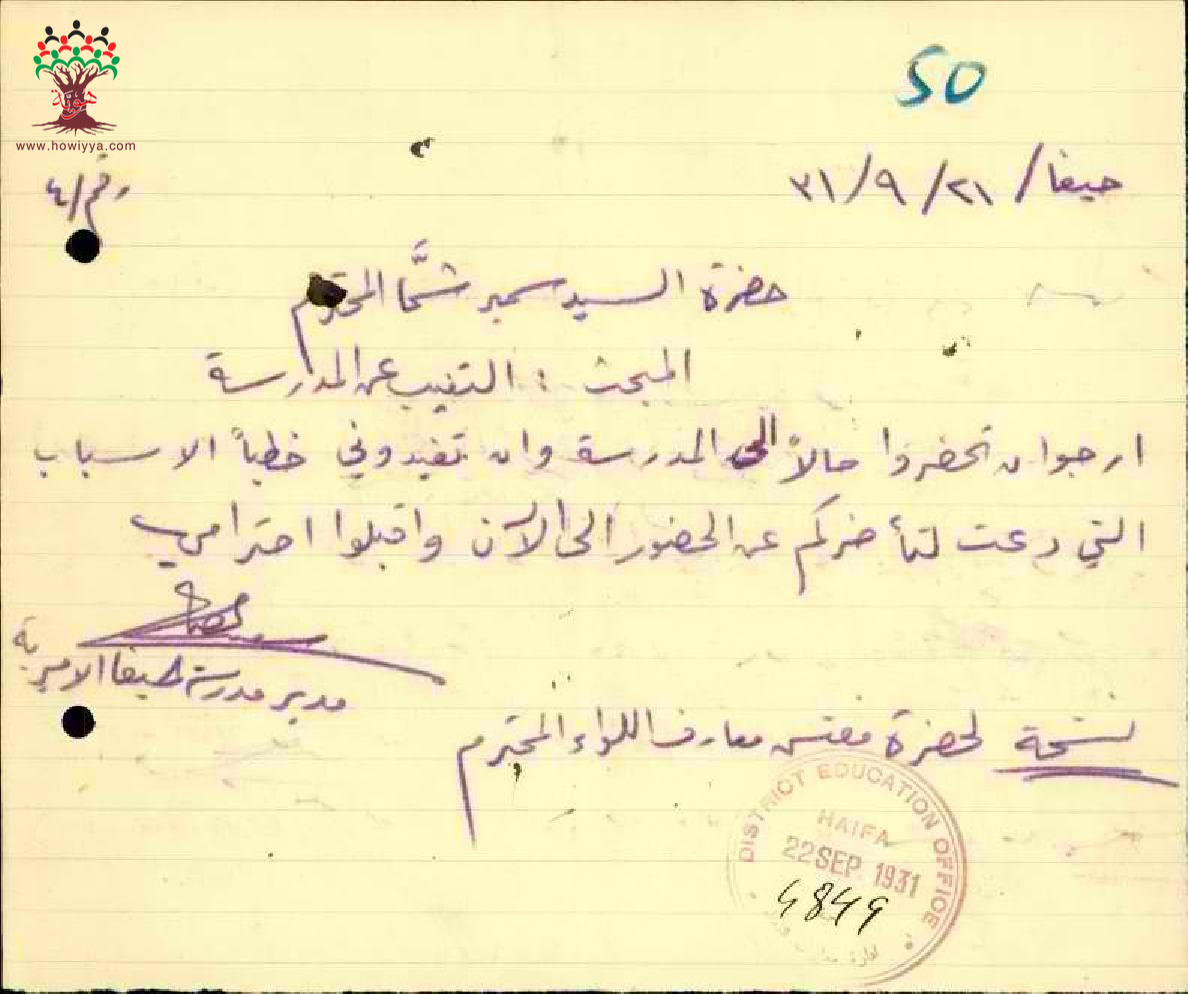 هوية
www.howiyya.com
50
حيفا / ٢١ / ٩ / ٣١
رقم / ٤
حضرة السيد سمير شمَّا المحترم
المبحث : التغيب عن المدرسة
ارجو ان تحضروا حالاً الى المدرسة وان تفيدوني خطياً الاسباب
التي دعت لتأخركم عن الحضور الى الآن واقبلوا احترامي
مدير مدرسة حيفا الاميرية
نسخة لحضرة مفتش معارف اللواء المحترم
DISTRICT EDUCATION OFFICE
HAIFA
22 SEP 1931
4849